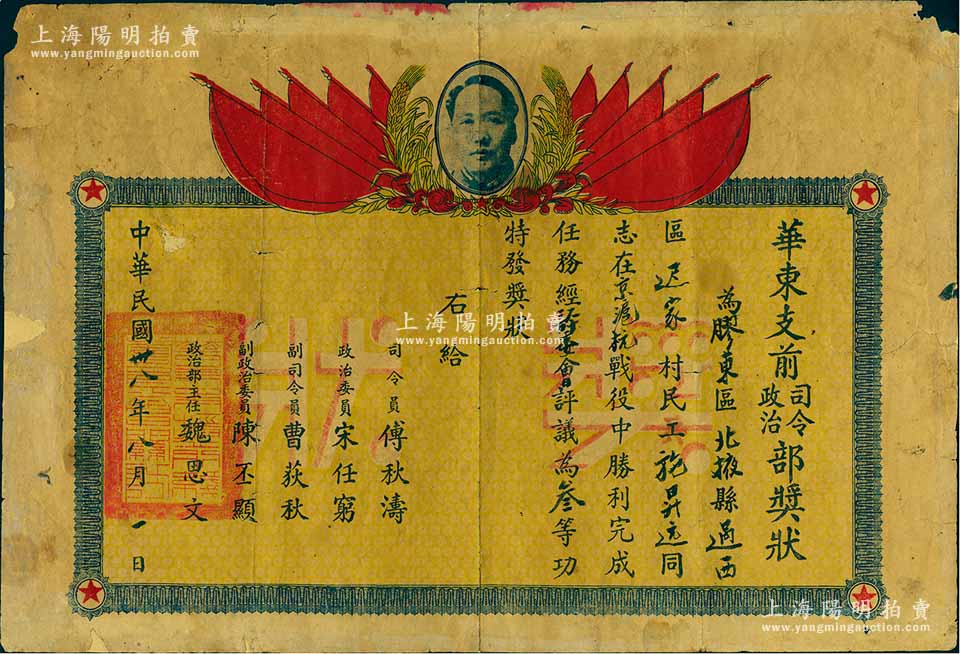 華東支前司令政治部獎狀
為膠東區北掖縣過西
區 家村民工 昇遠同
志在京滬抗戰役中勝利完成
任務經評委會評議為叁等功
特發獎狀
右給
司令員 傅秋濤
政治委員 宋任窮
副司令員 曹荻秋
副政治委員 陳丕顯
政治部主任 魏思文
中華民國卅八年八月一日
上海陽明拍賣
www.yangmingauction.com
上海陽明拍賣
www.yangmingauction.com
上海陽明拍賣
www.yangmingauction.com